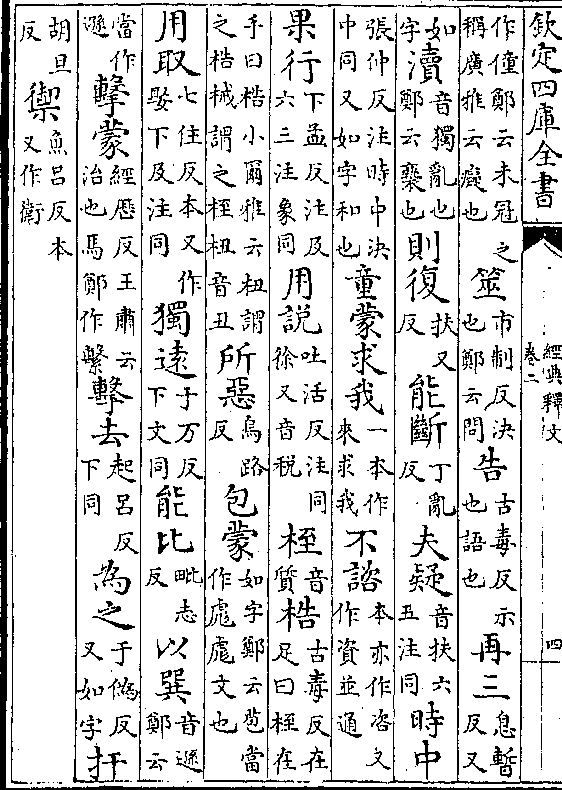 欽定四庫全書
經典釋文
卷二
四
作僮鄭云未冠之稱廣雅云癡也筮市制反決也鄭云問告古毒反示也語也再三息暫反又
如字瀆音獨亂也鄭云褻也則復扶又反能斷丁亂反夫疑音扶六五注同時中
張仲反注時中決中同又如字和也童蒙求我一本作來求我不諮本亦作咨又作資並通
果行下孟反注及六三注象同用說吐活反注同徐又音税桎音質梏古毒反在足曰桎在
手曰梏小爾雅云杻謂之梏械謂之桎杻音丑所惡烏路反包蒙如字鄭云苞當作彪彪文也
用取七住反本又作娶下及注同獨遠于万反下文同能比毗志反以巽音遜鄭云
當作遜擊蒙經歷反王肅云治也馬鄭作繫擊去起呂反下同為之于偽反又如字扞
胡旦反禦魚呂反本又作衛